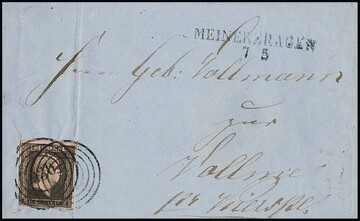 MEINERZHAGEN
7 5
Herrn Gebr. Vollmann
zur
Vollme
per Kierspe